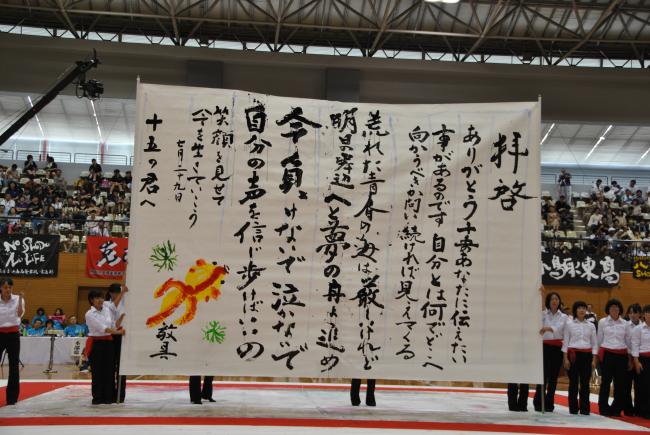 拝啓
ありがとう 十五 あなたに伝えたい
事があるのです 自分とは何でどこへ
向かうべきか 問い続ければ見えてくる
荒れた青春の海は厳しいけれど
明日の岸辺へと 夢の舟よ進め
今 負けないで 泣かないで
自分の声を信じ歩けばいいの
笑顔を見せて
今を生きていこう
七月二九日
十五の君へ
敬具
No Shodo
No Life